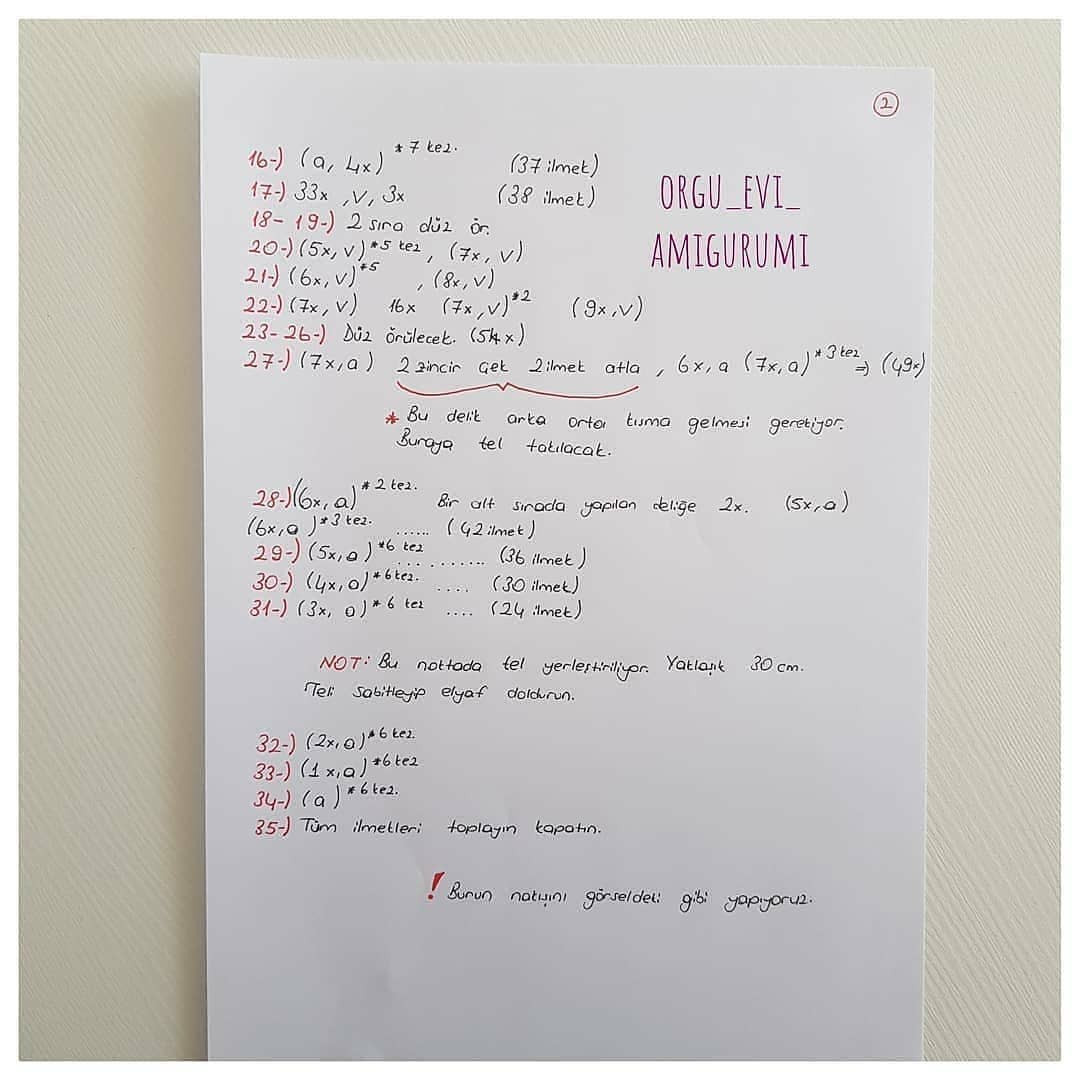 2
16-) (a, 4x) *7 kez. (37 ilmek)
17-) 33x, v, 3x (38 ilmek)
18-19-) 2 sıra düz ör.
20-) (5x, v) *5 kez, (7x, v)
21-) (6x, v) *5, (8x, v)
22-) (7x, v) 16x (7x, v) *2 (9x, v)
23-26-) Düz örülecek. (54x)
27-) (7x, a) 2 zincir çek 2 ilmek atla, 6x, a (7x, a) *3 kez ⇒ (49x)
* Bu delik arka orta kısma gelmesi gerekiyor.
Buraya tel takılacak.
28-) (6x, a) *2 kez. Bir alt sırada yapılan deliğe 2x. (5x, a)
(6x, a) *3 kez. ...... (42 ilmek)
29-) (5x, a) *6 kez .......... (36 ilmek)
30-) (4x, a) *6 kez. .... (30 ilmek)
31-) (3x, a) *6 kez .... (24 ilmek)
NOT: Bu noktada tel yerleştiriliyor. Yaklaşık 30 cm.
Teli sabitleyip elyaf doldurun.
32-) (2x, a) *6 kez.
33-) (1x, a) *6 kez
34-) (a) *6 kez.
35-) Tüm ilmekleri toplayın kapatın.
! Burun nakışını görseldeki gibi yapıyoruz.
ORGU_EVI_
AMIGURUMI